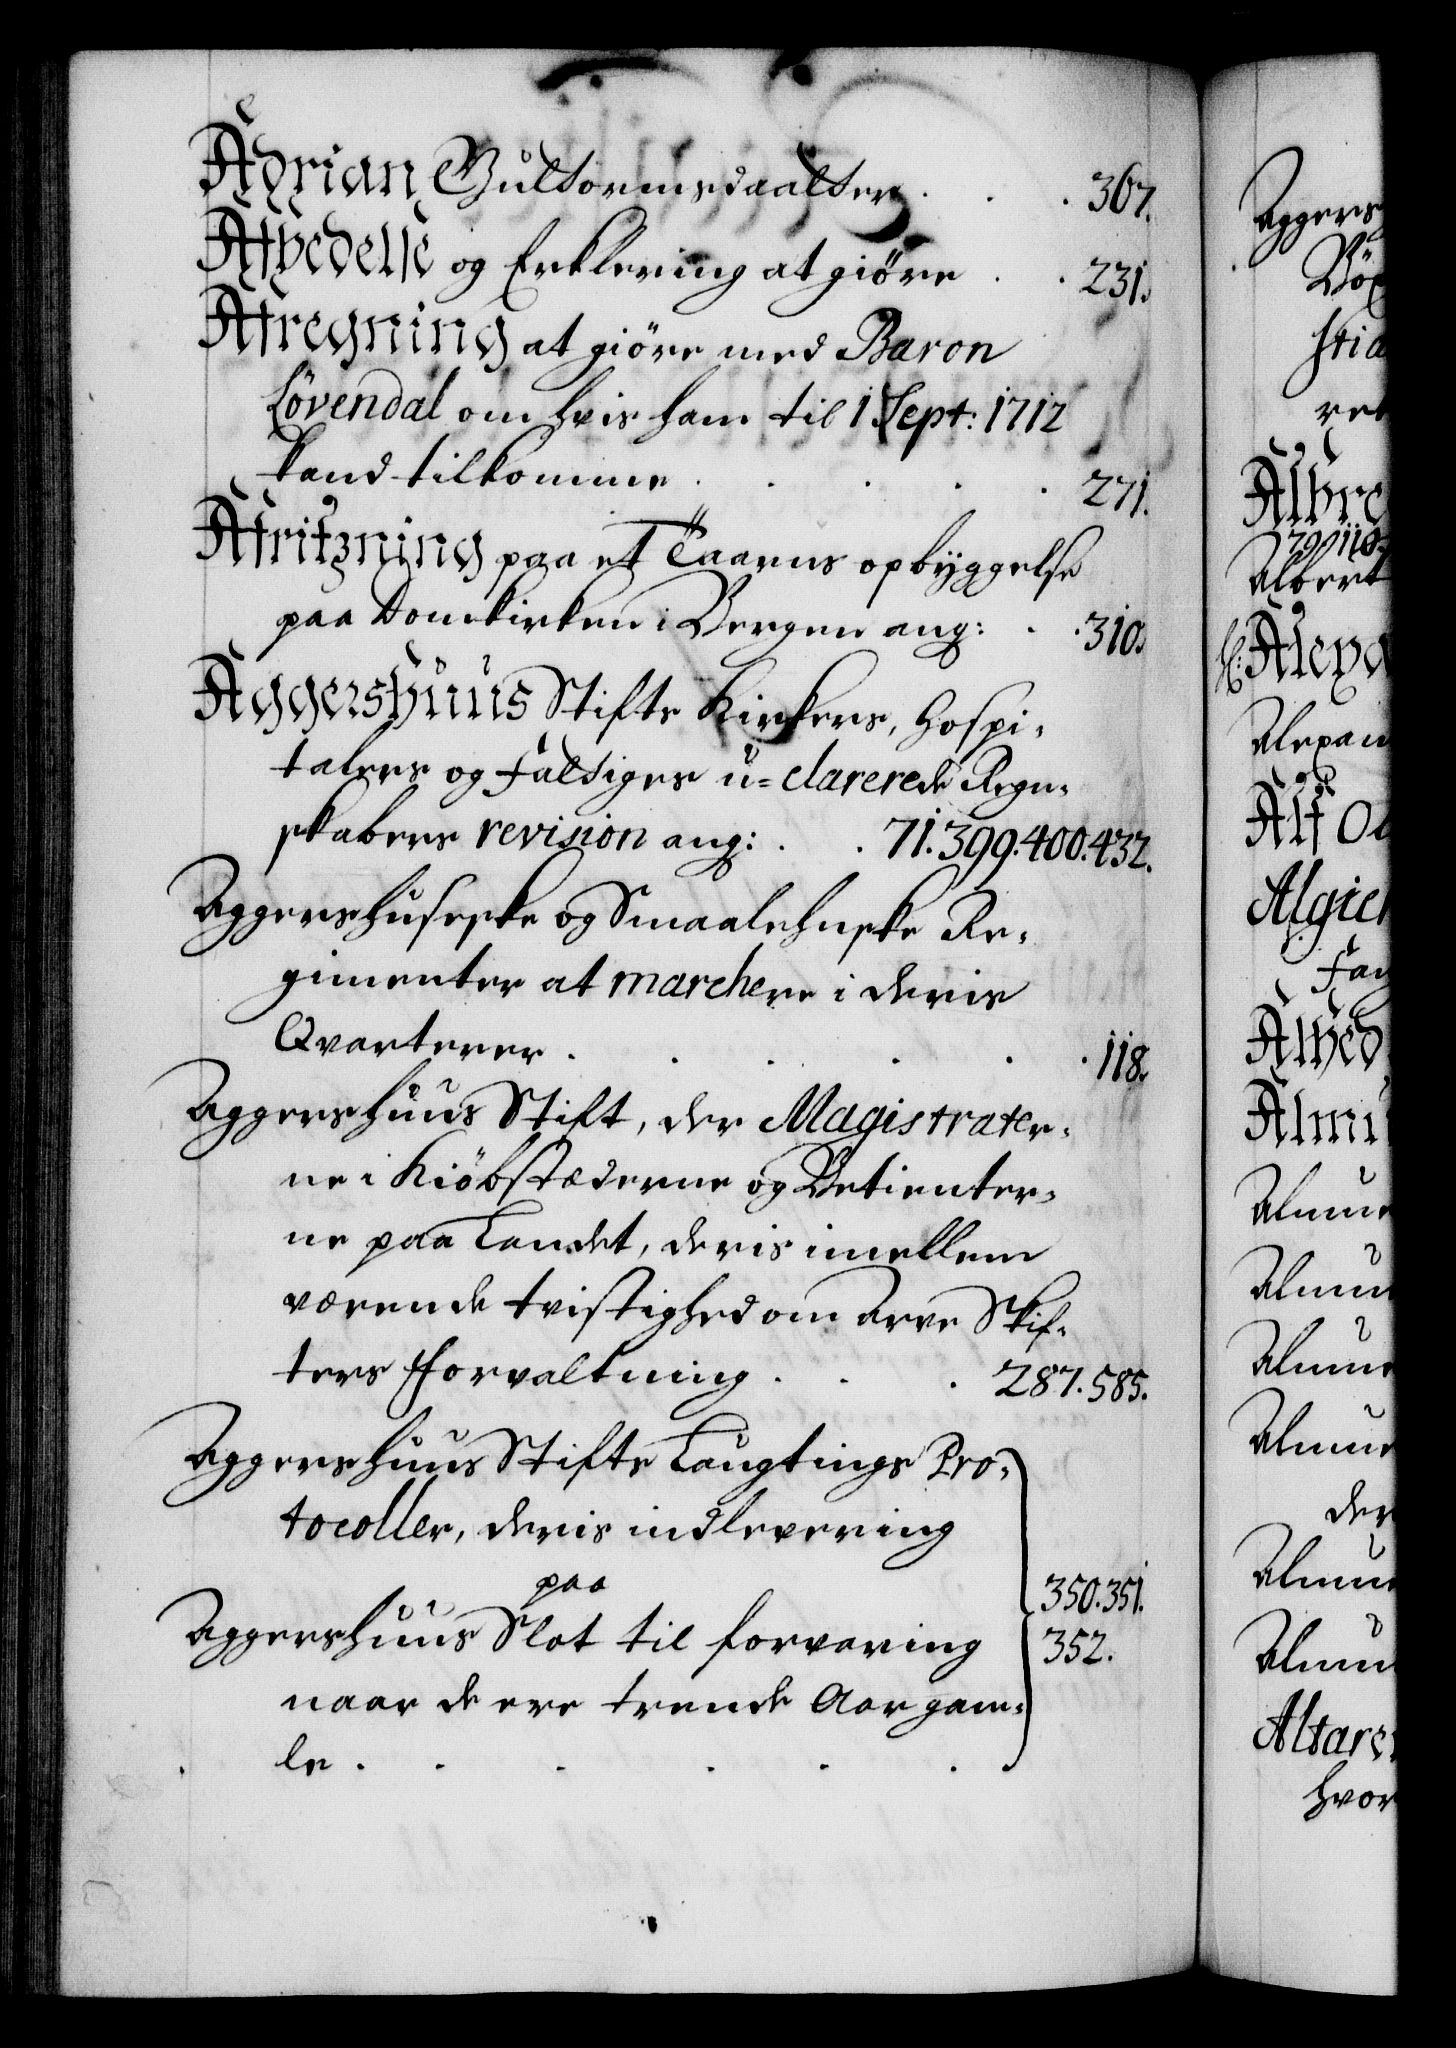 Adrian Gultormsdaalter . . . 367.
Afbedelse og Erklering at giöre . . 231.
Afregning at giöre med Baron
Lövendal om hvis ham til 1 Sept: 1712
kand tilkomme . . . . . 271.
Afritzning paa et Taarns opbÿggelse
paa Domkirken i Bergen ang: . . 310.
Aggershuus Stifts Kirkers, Hospi-
talers og Fattiges u=clarerede Regn-
skabers revision ang: . . 71. 399. 400. 432.
Aggershuseske og Smaalehnske Re-
gimenter at marchere i deris
Qvarterer . . . . . . 118.
Aggershuus Stift, der Magistrater-
ne i Kiöbstæderne og Betienter-
ne paa Landet, deris imellem
værende tvistighed om Arve Skif-
ters Forvaltning . . . 287. 585.
Aggershuus Stifts Laugtings Pro-
tocoller, deris indlevering
paa
Aggershuus Slot til forvaring
naar de ere trende Aar gam-
le . . . . . .
350. 351.
352.
Aggers
stia
Albre
Albert
Alexa
Alexan
Alf Ol
Algier
Fan
Almu
der
Altare
hvor